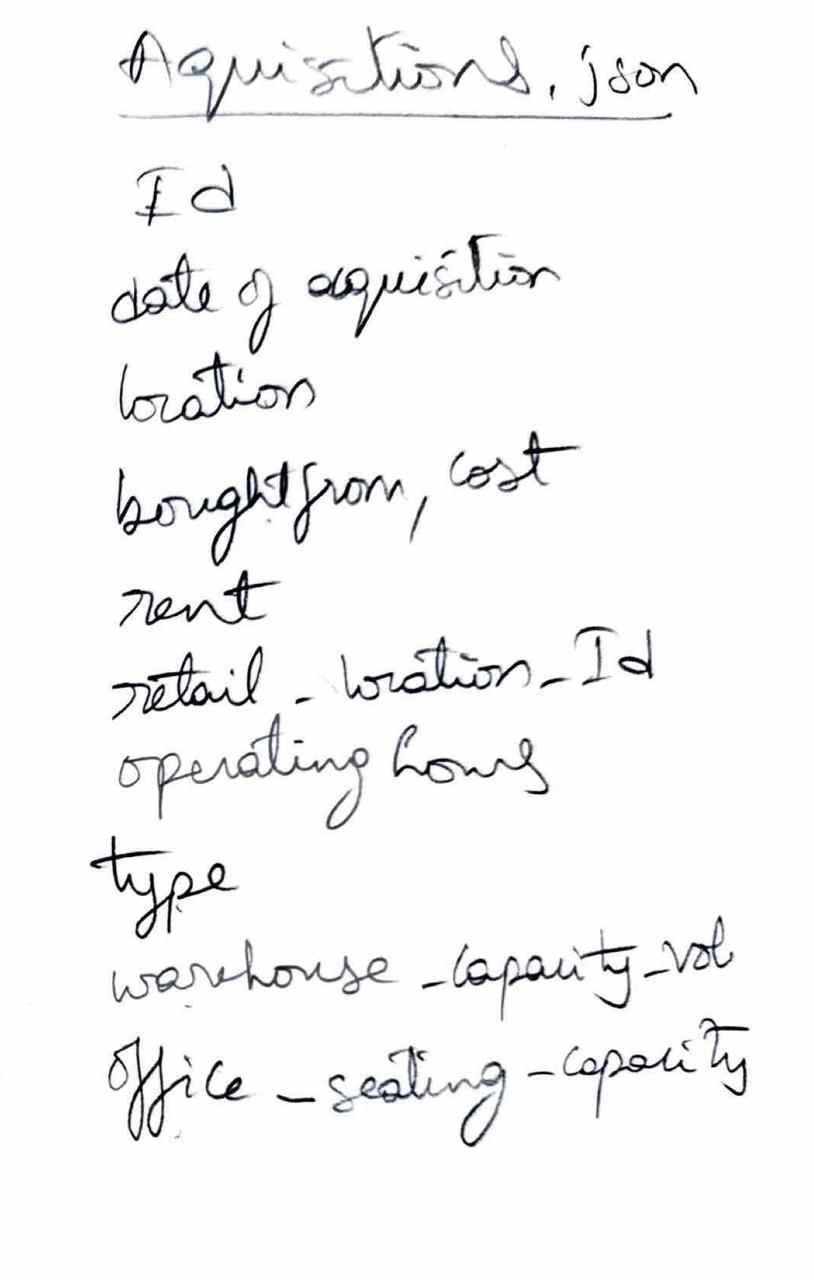 Aquisitions.json
Id
date of aquisition
location
bought from, cost
rent
retail_location_Id
operating hours
type
warehouse_capacity_vol
office_seating_capacity